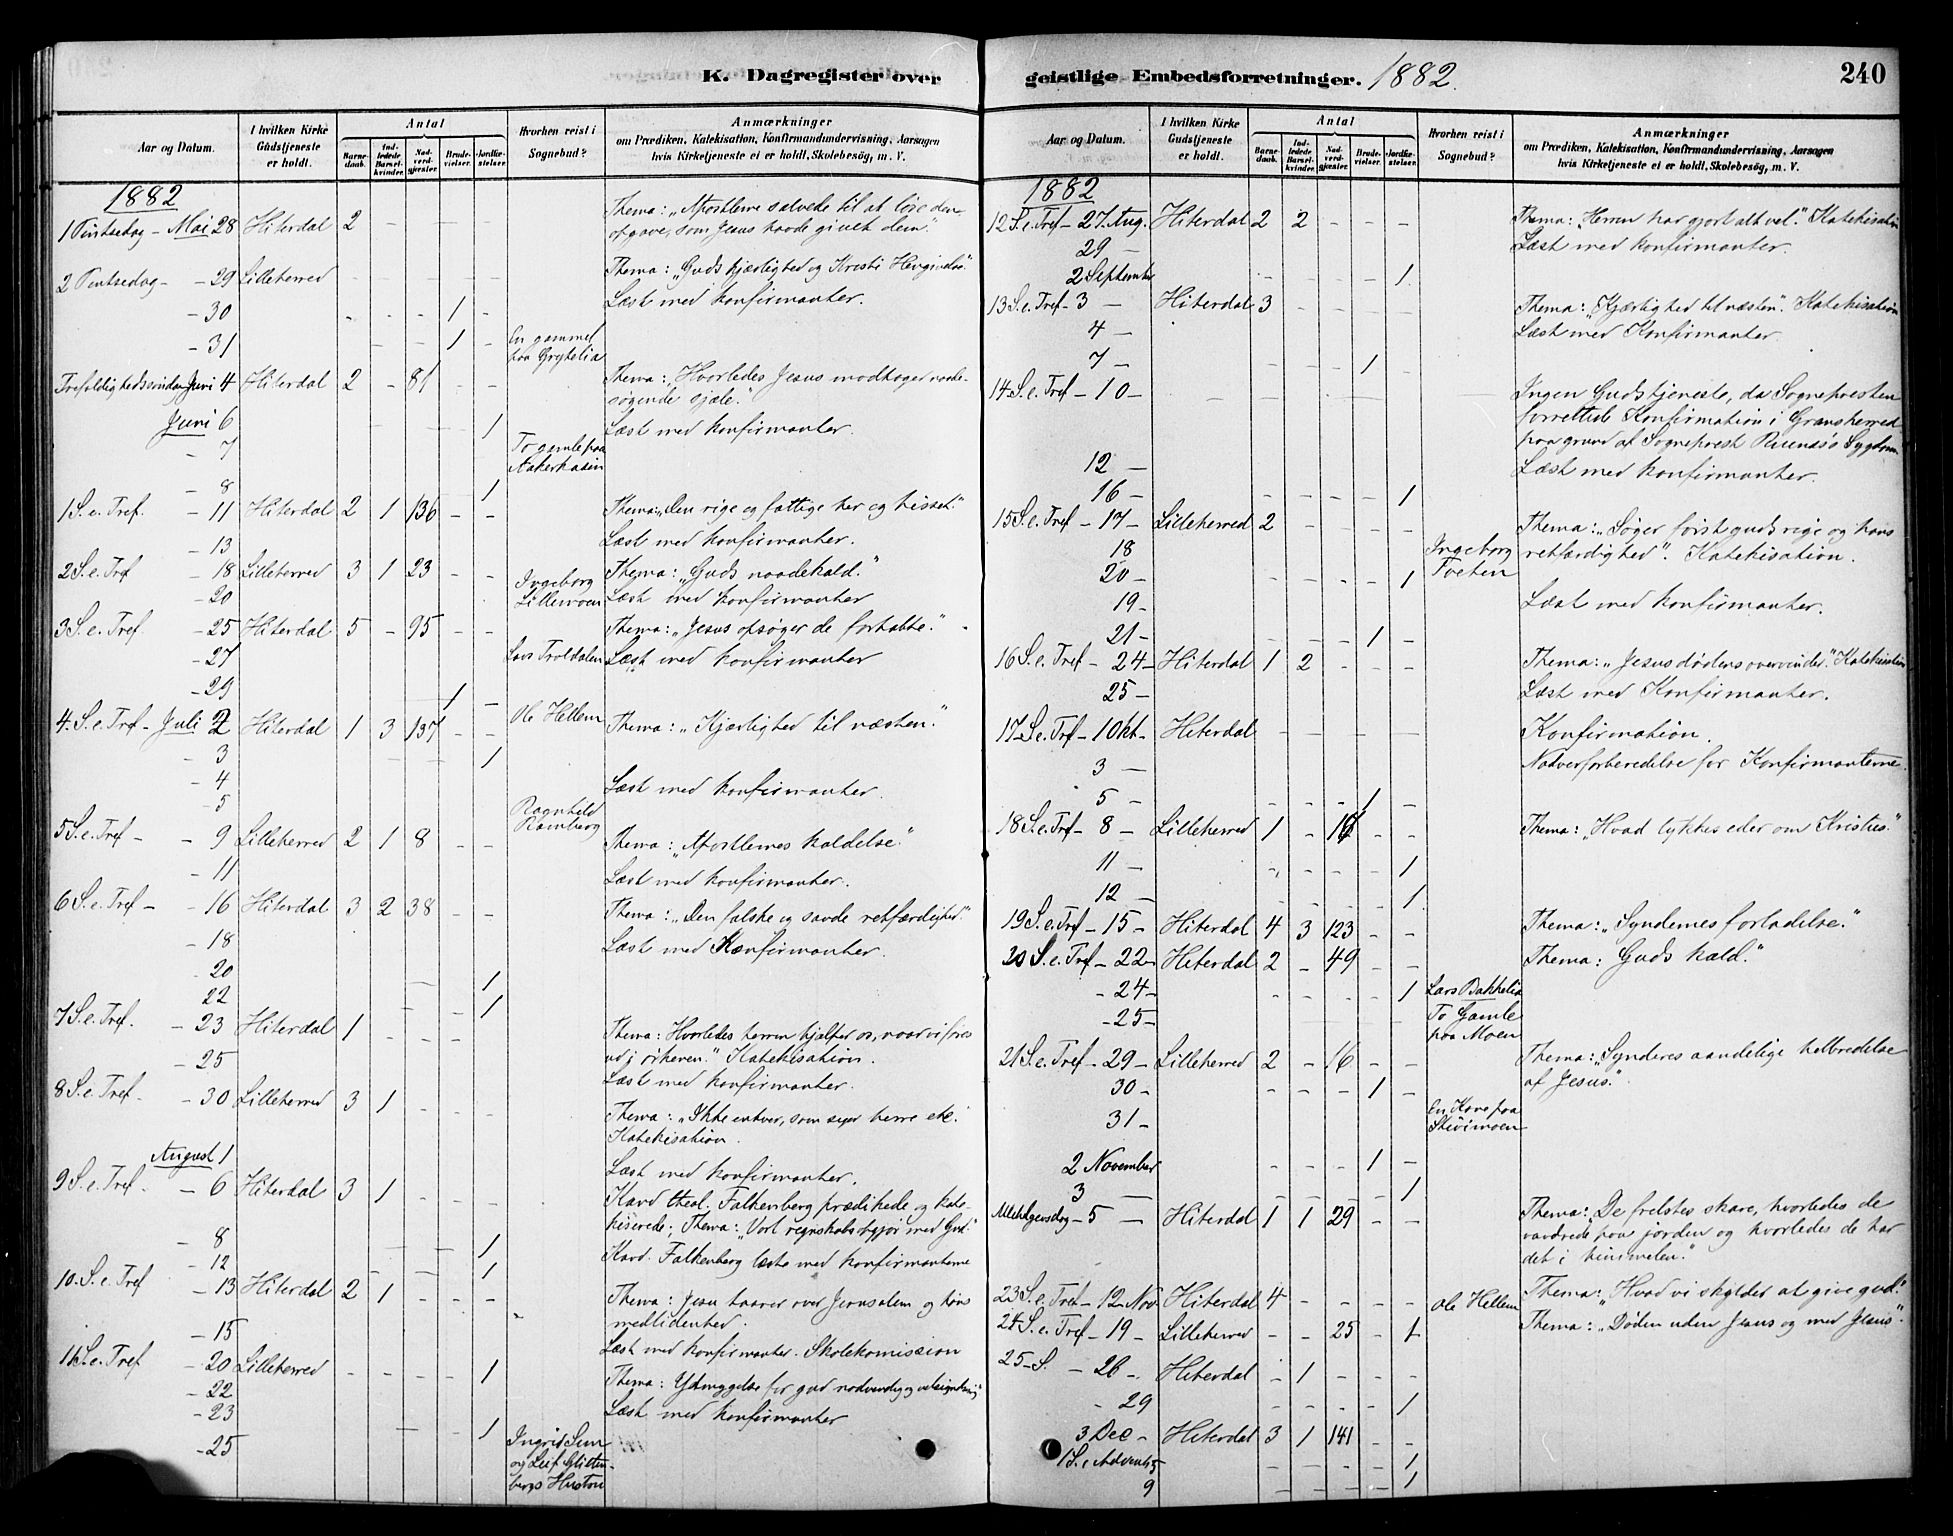 K. Dagregister over geistlige Embedsforretninger. 1882. 240
Aar og Datum.
I hvilken Kirke Gudstjeneste er holdt.
Antal
Barnedaab.
Indledede Barselkvinder.
Nadverdgjester.
Brudevielser.
Jordfæstelser.
Hvorhen reist i Sognebud?
Anmærkninger
om Prædiken, Katekisation, Konfirmandundervisning, Aarsagen
hvis Kirketjeneste ei er holdt, Skolebesøg, m. V.
1882
1 Pintsedag - Mai 28 Hiterdal 2 - - - - Thema: „Apostlerne salvede til at løse den
opgave, som Jesus havde givet dem."
2 Pintsedag - - 29 Lilleherred - - - - - Thema: „Guds kjærlighed og Kristi Hengivelse."
- 30 - - - 1 - Læst med Konfirmanter.
- 31 - - 1 - En gammel
paa Grytelia
Trefoldighedssøndag Juni 4 Hiterdal 2 - 81 - - Thema: „Hvorledes Jesus modtager naade-
søgende sjæle."
Juni 6 1 Læst med Konfirmanter.
- 7 To gamle paa
Aakerhasin
- 8 - 1
1 S. e. Tref. - 11 Hiterdal 2 1 136 - - Thema: „Den rige og fattige her og hisset."
- 13 Læst med Konfirmanter.
2 S. e. Tref - 18 Lilleherred 3 1 23 - - Thema: „Guds naadekald."
- 20 Ingeborg
Lillemoen Læst med Konfirmanter
3 S. e. Tref. - 25 Hiterdal 5 - 95 - - Thema: „Jesus opsøger de fortabte."
- 27 Lars Troldalen Læst med Konfirmanter
- 29 1 -
4. S. e. Tref - Juli 2 Hiterdal 1 3 137 - - Ole Hellem Thema: „Kjærlighed til næsten."
- 3 1
- 4 Læst med Konfirmanter.
- 5 Ragnhild
Ramberg
5 S. e. Tref - - 9 Lilleherred 2 1 8 - - Thema: „Apostlernes kaldelse."
- 11 Læst med Konfirmanter.
6 S. e. Tref - - 16 Hiterdal 3 2 38 - - Thema: „Den falske og sande retfærdighed."
- 18 Læst med Konfirmanter.
- 20 - 1
22 - 1
7 S. e. Tref. - 23 Hiterdal 1 - - - - Thema: Hvorledes herren hjælper os, naar vi føres
ud i ørkenen." Katekisation.
- 25 Læst med Konfirmanter.
8 S. e. Tref. - 30 Lilleherred 3 1 - - - Thema: „Ikke enhver, som siger herre etc.
Katekisation.
August 1 Læst med Konfirmanter.
9 S. e. Tref. - 6 Hiterdal 3 1 - - - Kand. theol. Falkenberg prædikede og kate-
kiserede; Thema: „Vort regnskabsopgjør med Gud."
- 8 - - 1 Kand. Falkenberg læste med Konfirmanterne
- 12 - - 1
10. S. e. Tref - 13 Hiterdal 2 1 - - - Thema: Jesu taarer over Jerusalem og hans
medlidenhed.
- 15 Læst med Konfirmanter. Skolekomission
11 S. e. Tref - 20 Lilleherred - - - - 1 Thema: Ydmygelse for gud nødvendig og velsignelsesrig"
- 22 Læst med Konfirmanter
- 23 - 1
- 25 Ingrid Sem
og Leif
bergs Hustru
1882
12 S. e. Tref - 27. Aug. Hiterdal 2 2 - - - Thema: „Herren har gjort alt vel." Katekisation
29 - Læst med Konfirmanter.
2 September - - - - 1
13 S. e. Tref - 3 - Hiterdal 3 - - - - Thema: „Kjærlighed til næsten". Katekisation
4 - Læst med Konfirmanter
7 - - - - 1 -
14 S. e. Tref - 10 - - - - - - Ingen Gudstjeneste, da Sognepresten
forrettede Konfirmation i Gransherred
paa grund af Sogneprest Sygdom
12 - Læst med Konfirmanter.
16 - - - - - 1
15 S. e. Tref - 17 - Lilleherred 2 - - - - Thema: „Søger først guds rige og hans
retfærdighed". Katekisation.
18 Ingeborg
Tveten
20 - - - - - 1
19 - Læst med Konfirmanter.
21 - - - - 1 -
16 S. e. Tref - 24 - Hiterdal 1 2 - - - Thema: „Jesus dødens overvinder." Katekisation
25 - Læst med Konfirmanter.
17 S. e. Tref - 1 Okt - Hiterdal - - - - - Konfirmation.
3 - Nadverforberedelse for Konfirmanterne.
5 - - - - 1 -
18 S. e. Tref - 8 - Lilleherred 1 - 16 - - Thema: „Hvad tykkes eder om Kristus."
11 - - - - - 1
12 - - - - - 1
19 S. e. Tref - 15 - Hiterdal 4 3 123 - - Thema: „Syndernes forladelse."
20 S. e. Tref - 22 - Hiterdal 2 - 49 - - Thema: Guds kald."
- 24 - - - - - 1 Lars Bakkelia
- 25 - To Gamle
paa Moen
21 S. e. Tref - 29 - Lilleherred 2 - 16 - - Thema: „Synderes aandelige helbredelse
af Jesus."
30 - - - - 1 -
31 - En Kone paa
2 November - - - 1 -
3 - - - - - 1
Allehelgensdag - 5 - Hiterdal 1 1 29 - - Thema: „De frelstes skare, hvorledes de
vandrede paa jorden og hvorledes de har
det i himmelen."
23 S. e. Tref - 12 Nov. Hiterdal 4 - - - - Ole Hellem Thema: „Hvad vi skylder at give gud."
24 S. e. Tref - 19 - Lilleherred - - 25 - 1 Thema: „Døden uden Jesus og med Jesus".
25 - S. - 26 - Hiterdal - 1 - - -
- 29 - - - - 1
3 Dec - Hiterdal 3 1 141 - -
1 S. i Advent 5 - - - - 1
9 - - - - 1